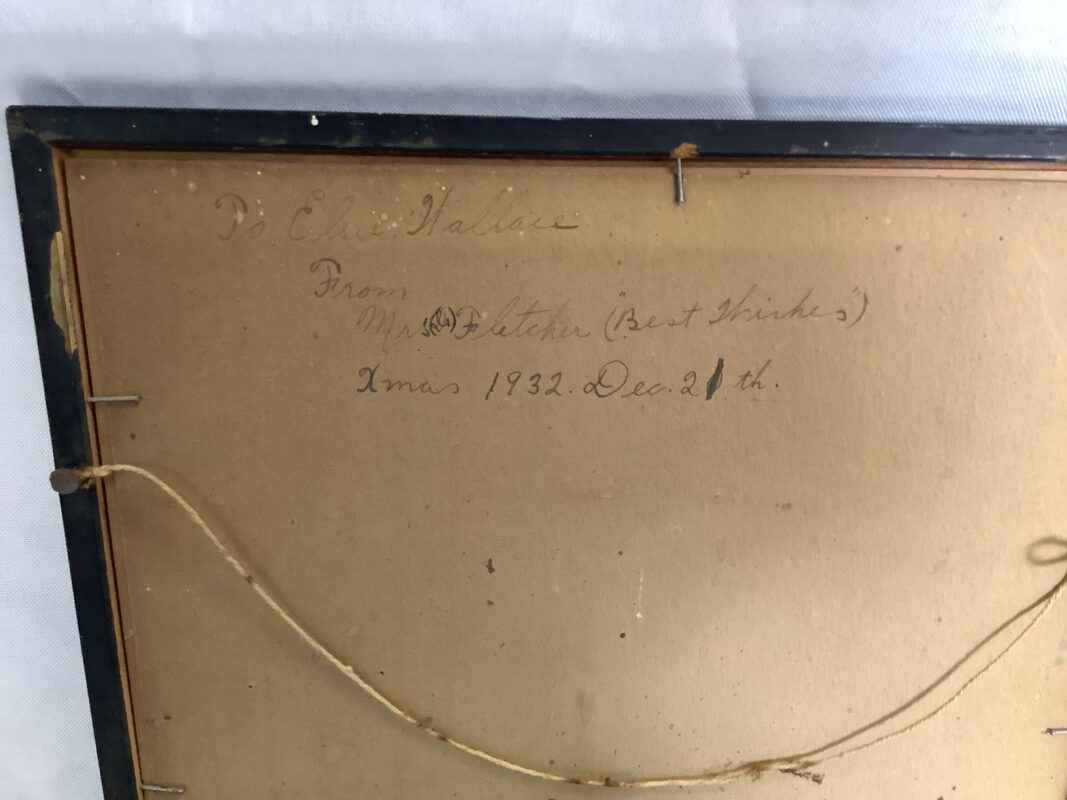 To Elsie Wallace
From
Mrs Fletcher ("Best Wishes")
Xmas 1932. Dec. 21th.